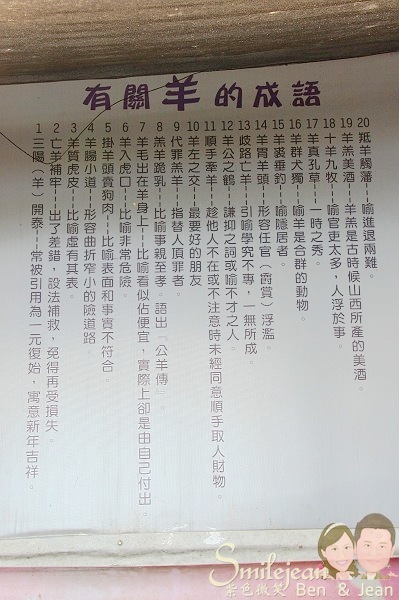 有關羊的成語
1 三陽（羊）開泰－－常被引用為一元復始，寓意新年吉祥。
2 亡羊補牢－－出了差錯，設法補救，免得再受損失。
3 羊質虎皮－－比喻虛有其表。
4 羊腸小道－－形容曲折窄小的險道路。
5 掛羊頭賣狗肉－－比喻表面和事實不符合。
6 羊入虎口－－比喻非常危險。
7 羊毛出在羊身上－－比喻看似佔便宜，實際上卻是由自己付出。
8 羔羊跪乳－－比喻事親至孝。語出「公羊傳」。
9 代罪羔羊－－指替人頂罪者。
10 羊左之交－－最要好的朋友
11 順手牽羊－－趁他人不在或不注意時未經同意順手取人財物。
12 羊公之鶴－－謙抑之詞或喻不才之人。
13 歧路亡羊－－引喻學究不專，一無所成。
14 羊胃羊頭－－形容任官（爵賞）浮濫。
15 羊裘垂釣－－喻隱居者。
16 羊群犬獨－－喻羊是合群的動物。
17 羊真孔草－－一時之秀。
18 十羊九牧－－喻官吏太多，人浮於事。
19 羊羔美酒－－羊羔是古時候山西所產的美酒。
20 羝羊觸藩－－喻進退兩難。
Smilejean
紫色微笑 Ben & Jean